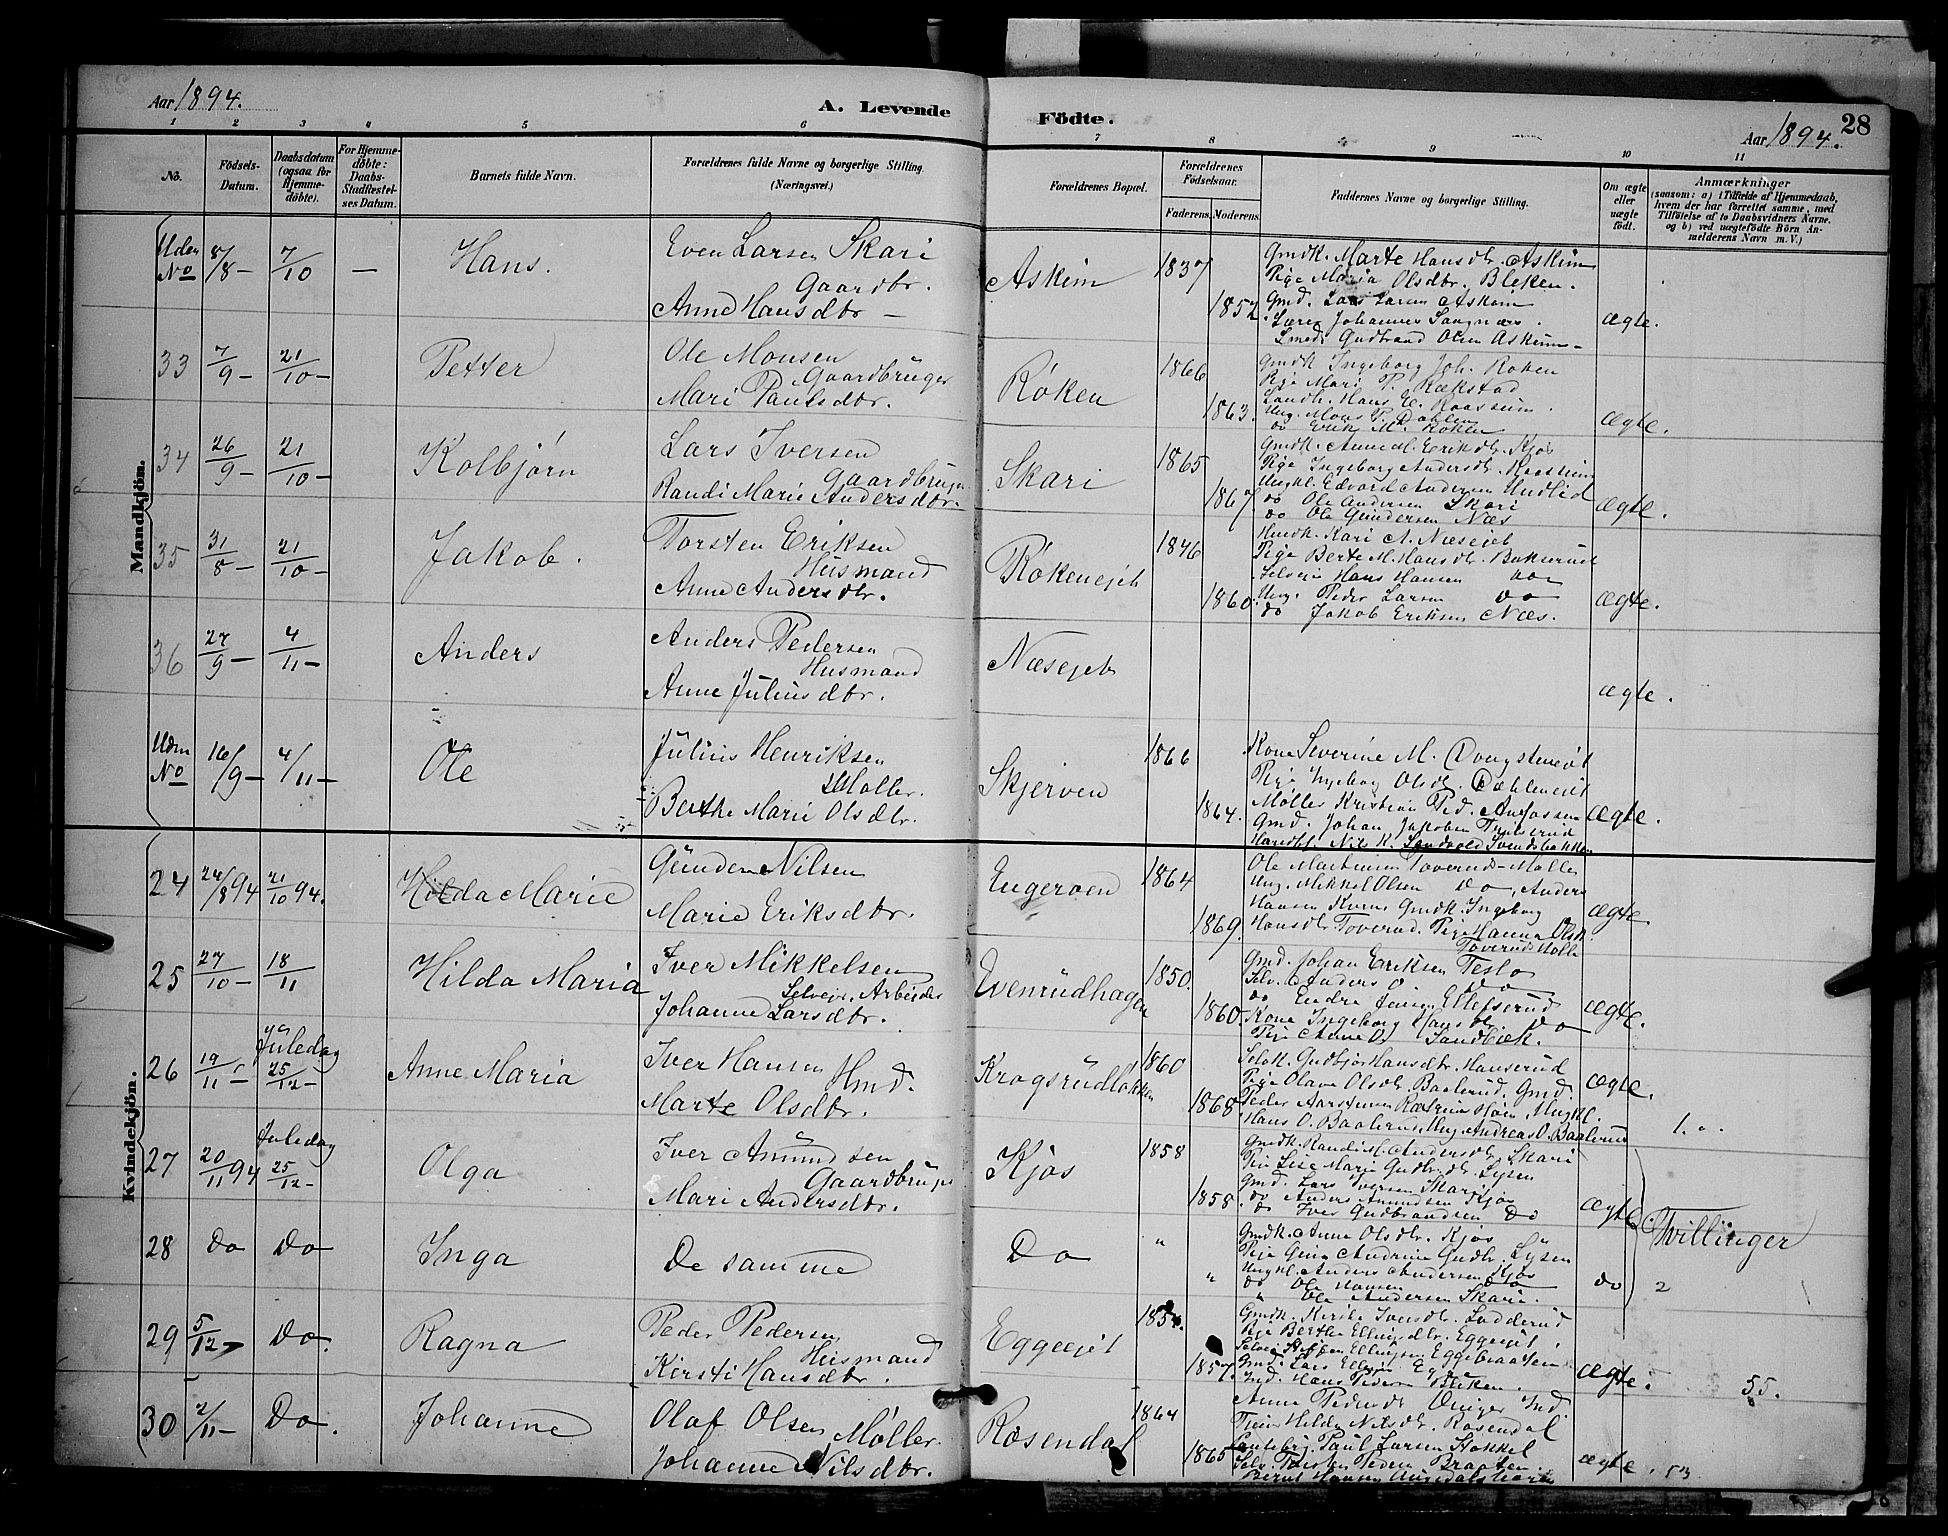 Aar 1894.
A. Levende
Födte.
Aar 1894.
28
1 2 3 4 5 6 7 8 9 10 11
No.
Födsels-Datum.
Daabsdatum (ogsaa for Hjemmedöbte).
For Hjemmedöbte: Daabs-Stadfæstelses Datum.
Barnets fulde Navn.
Forældrenes fulde Navne og borgerlige Stilling. (Næringsvei.)
Forældrenes Bopæl.
Forældrenes Födselsaar.
Faderens. Moderens.
Faddernes Navne og borgerlige Stilling.
Om ægte eller uægte födt.
Anmærkninger
(saasom: a) i Tilfælde af Hjemmedaab, hvem der har forrettet samme, med Tilföielse af to Daabsvidners Navne, og b) ved uægtefödte Börn Anmelderens Navn m. V.)
Mandkjön.
Uden No 8/8 - 7/10 - Hans. Even Larsen Skari Gaardbr. Anne Hansdtr - Askim 1837 1852 ægte.
Gmdk. Marte Hansdtr. Askim
Pige Maria Olsdtr. Bleken.
Gmd. Lars Larsen Askim
Lærer Johannes
Smed. Gudbrand Olsen Askim -
33 7/9 - 21/10 - Petter Ole Monsen Gaardbruger Mari Paulsdtr. Röken 1866 1863. ægte.
Gmdk Ingeborg Joh. Röken
Pige Mari P. Rækstad
Landh. Hans E. Kaassum.
Ung. Mons P. Dahlen
do Erik M. Röken
34 26/9 - 21/10 - Kolbjörn Lars Iversen Gaardbruger Randi Marie Andersdtr. Skari 1865 1867. ægte.
Gmdk. Anne M. Eriksdtr. Kjös
Pige Ingeborg Andersdtr.
Ungkl. Edvard Andersen
do Ole Andersen Skari
do Ole Gundersen Næs
35 31/8 - 21/10 - Jakob. Torsten Eriksen Husmand Anne Andersdtr. Rökenejet 1846 1860. ægte.
Hmdk. Kari A. Næsejet
Pige Berte M. Hansdtr. Bakkerud
Selveier Hans Hansen do
Ung. Peder Larsen do
do Jakob Eriksen Næs.
36 27/9 - 4/11 - Anders Anders Pedersen Husmand Anne Juliusdtr. Næsejet ægte.
Uden No 16/9 - 4/11 - Ole Julius Henriksen Møller. Berthe Marie Olsdtr. Skjerven 1866 1864. ægte.
Kone Severine M.
Pige Ingeborg Olsdtr. Dæhleneiet
Møller Kristian Ped.
Gmd. Johan Jakobsen
Nils K.
Kvindekjön.
24 24/8 94 21/10 94. Hilda Marie Gunder Nilsen Marie Eriksdtr. Engeroen 1864 1869. ægte.
Ole Martinsen Toverud-Mølle
Ung. Mikkel Olsen do, Anders
Hansen Gmdk. Ingeborg
Hansdtr Toverud. Pige Hanna Olsdt.
Toverud Mølle
25 27/10 - 18/11 Hilda Maria Iver Mikkelsen Selveier, Arbeider Johanne Larsdtr. Evenrudhagen 1850. 1860. ægte.
Gmd. Johan Eriksen Teslo
Selv. Anders O. do
do Endre Jensen Ellefsrud
Kone Ingeborg Hansdtr. do
Pige Anne O. Sandbæk.
26 19/11 - Juledag 25/12 - Anne Maria Iver Hansen Hmd. Marte Olsdtr. Kragsrudløkken 1860 1868. ægte. 1.
Selvk. Gudbjør Hansdtr. Hanserud
Pige Olava Olsdtr. Baalerud. Gmd.
Peder Ungkl.
Hans O. Baalerud Ung Andreas O. Baalerud
27 20/11 94 Juledag 25/12 - Olga Iver Amundsen Gaardbruger Mari Andersdtr. Kjøs 1858 1858. ægte
Gmdk. Randi M. Andersdtr. Skari
Pige Lise Marie Gudbr.dtr. Lysen
Gmd. Lars Iversen Skari
do Anders Amundsen Kjøs
do Iver Gudbrandsen do
28 Do Do Inga De samme Do " " do Tvillinger 2
Gmdk. Anne Olsdtr. Kjøs
Pige Gina Andrine Gudbr. Lysen
Ungkl. Anders Andersen Kjøs
do Ole Hansen do
" Ole Andersen Skari.
29 5/12 - Do. Ragna Peder Pedersen Husmand Kirsti Hansdtr. Eggeejet 1854. 1857. ægte. 55.
Gmdk. Kirsti Iversdtr. Ludderud
Pige Berthe Ellingsdtr. Eggeejet
Ellingsen Eggebraaten
Gmd. Lars
Ind. Hans Pedersen Bleken.
30 2/11 - Do. Johanne Olaf Olsen Møller. Johanne Nilsdtr. Rosendal 1864 1865 ægte. 53.
Anna Pedersdt Ind.
Hilda Nilsdtr. Rosendal
Paul Larsen Stokkel
Selv. Torsten Pedersen Braaten.
Bernt Hansen